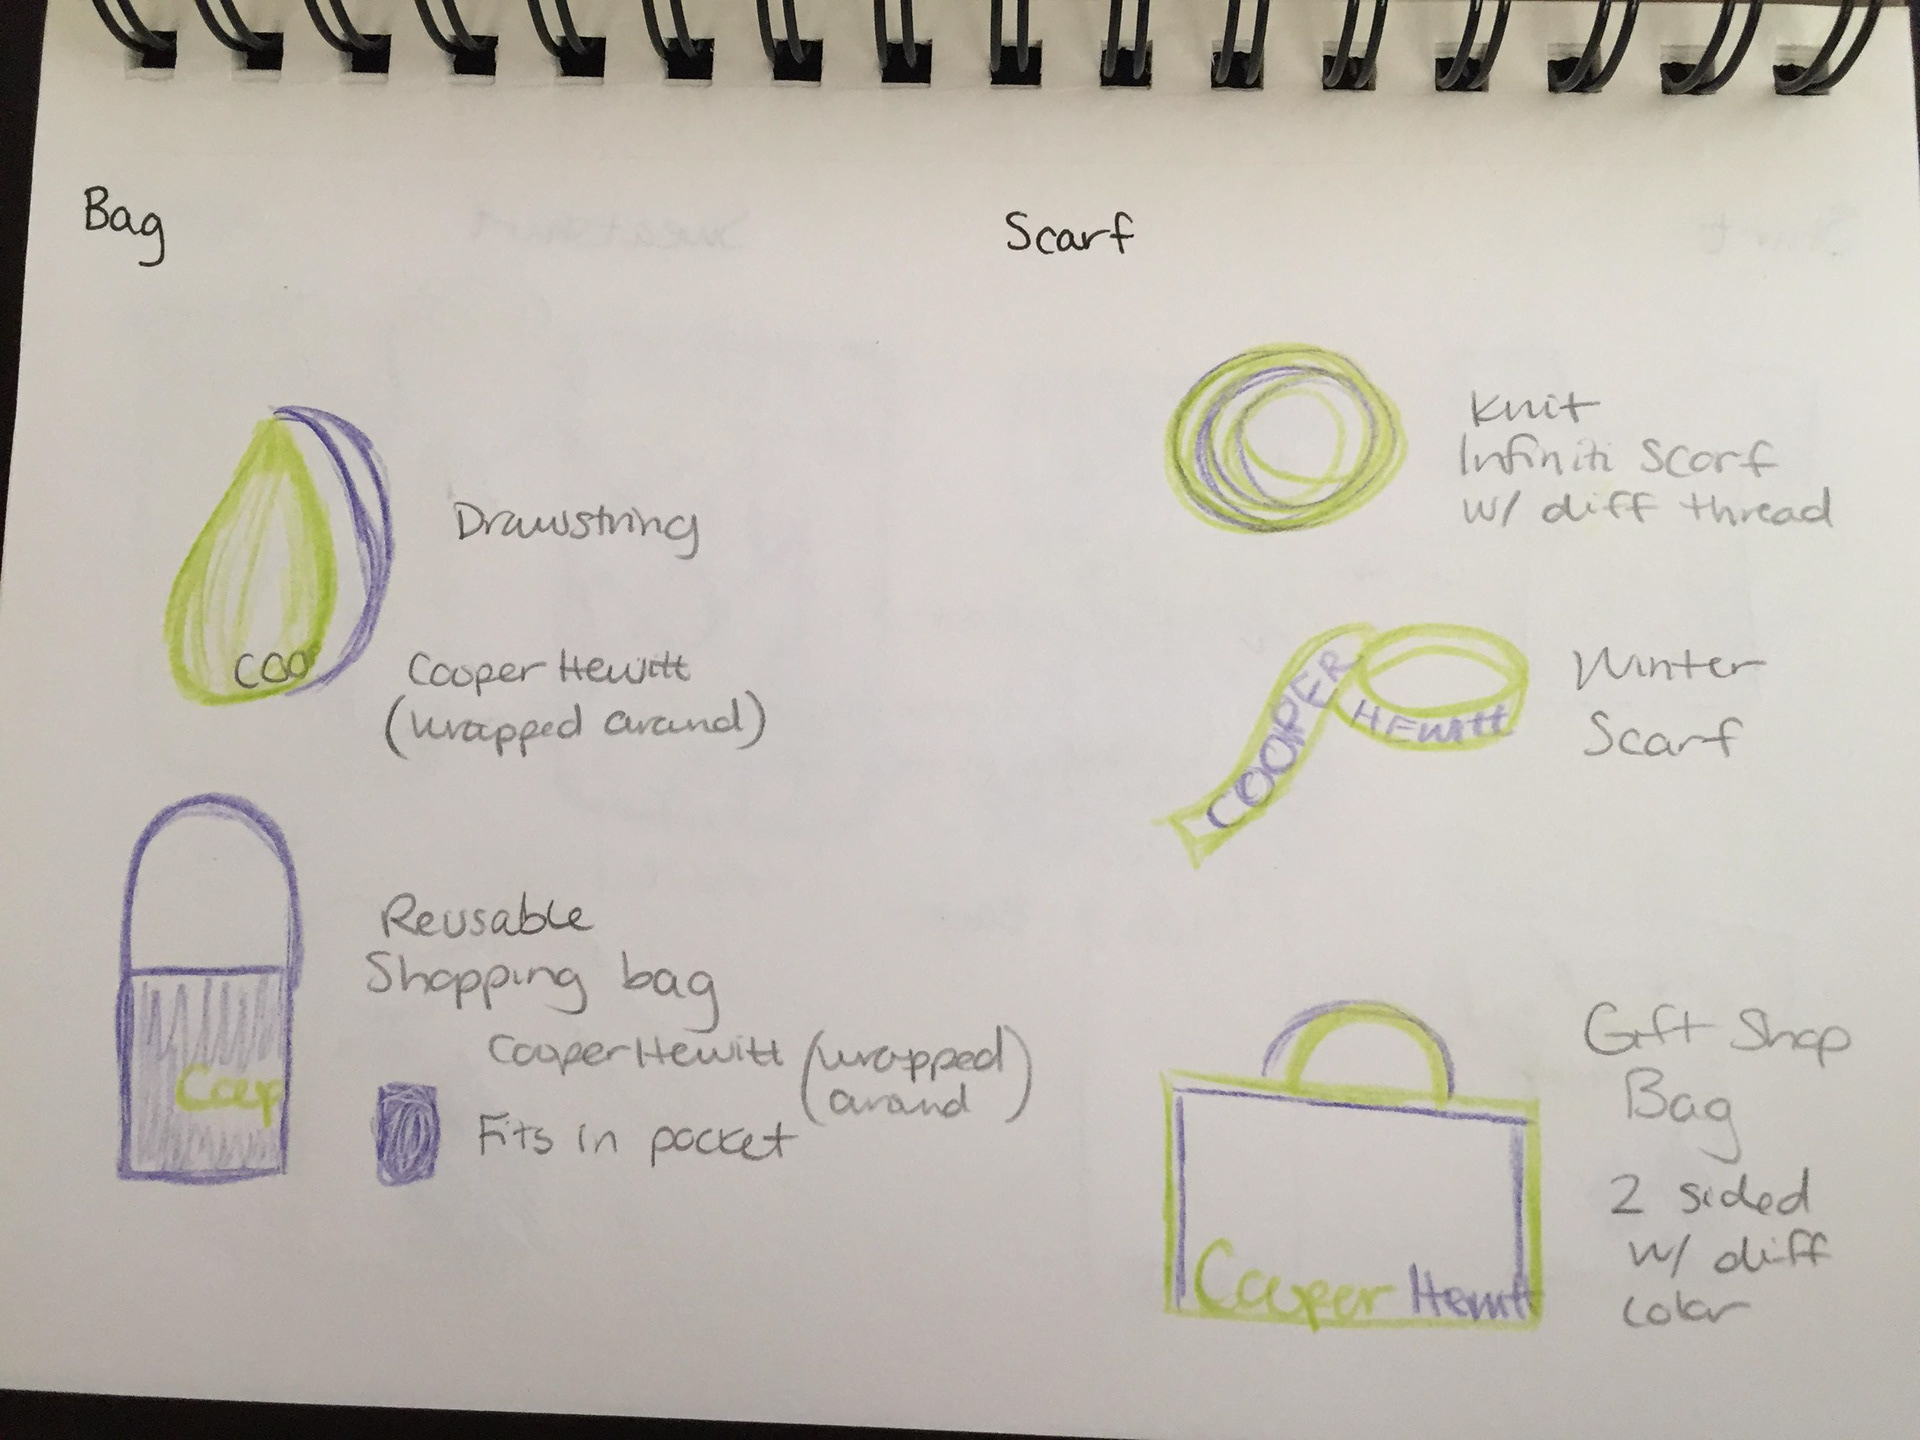 Bag
Drawstring
COO
Cooper Hewitt
(wrapped around)
Reusable
Shopping bag
Cooper Hewitt (wrapped around)
Coop
Fits in pocket
Scarf
Knit
Infiniti Scarf
w/ diff thread
COOPER
HEwitt
Winter
Scarf
Gift Shop
Bag
2 sided
w/ diff
color
Cooper Hewitt